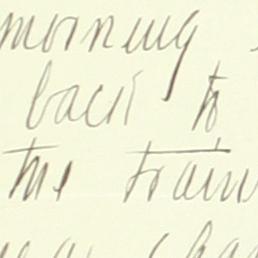 morning
back to
the train